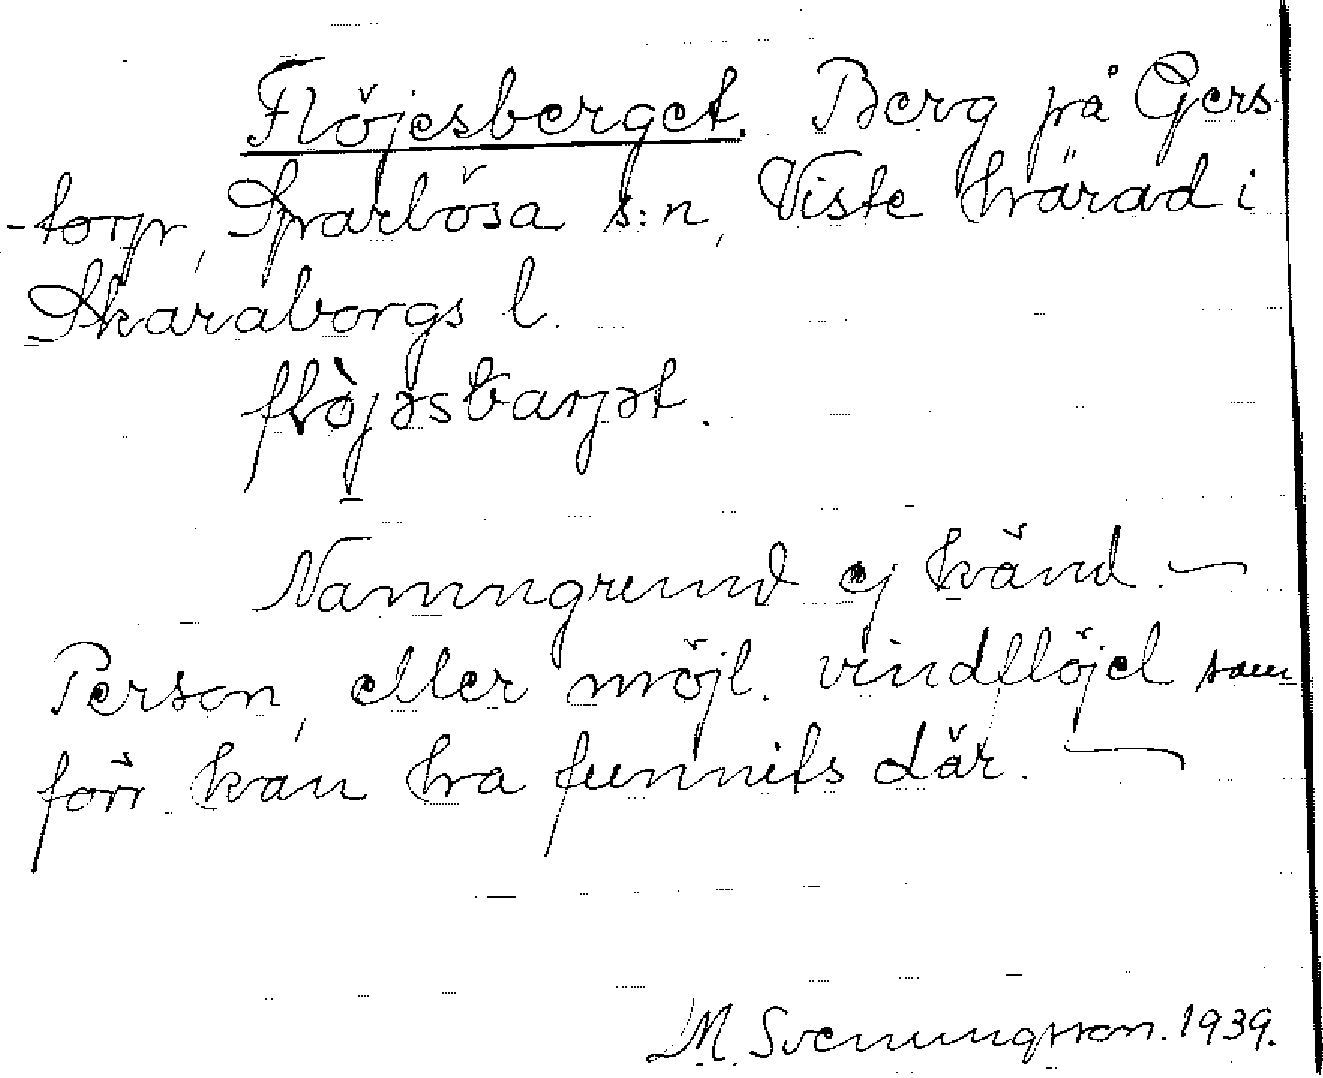 Flöjesberget. Berg på Gers-
-torp, Sparlösa s:n, Viste härad i
Skaraborgs l.
flòjəsbarjət.
Namngrund ej känd. —
Person, eller möjl. vindflöjel som
förr kan ha funnits där. —
M. Svenungsson. 1939.